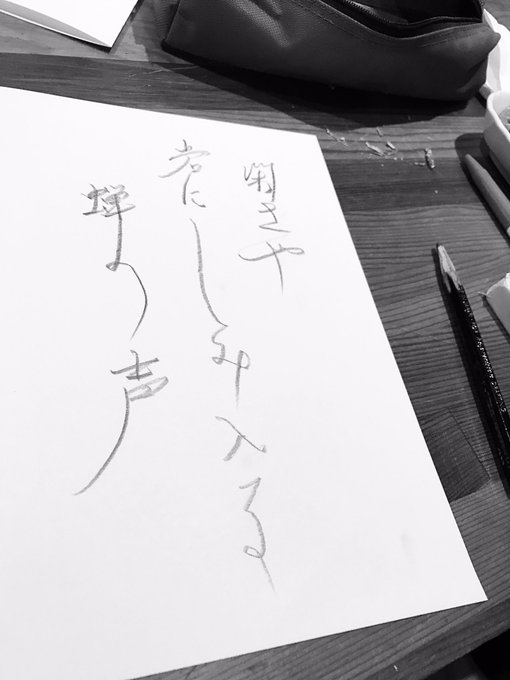 閑さや
岩にしみ入る
蝉の声